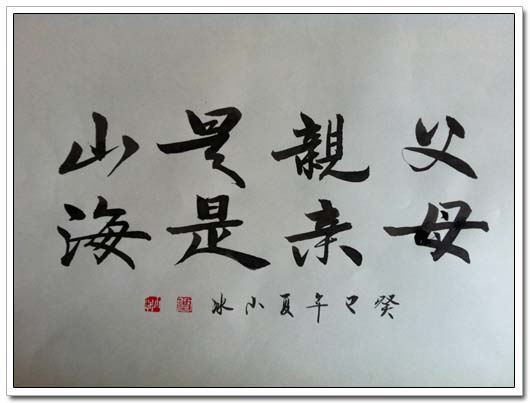 父親是山
母亲是海
癸巳年夏小冰